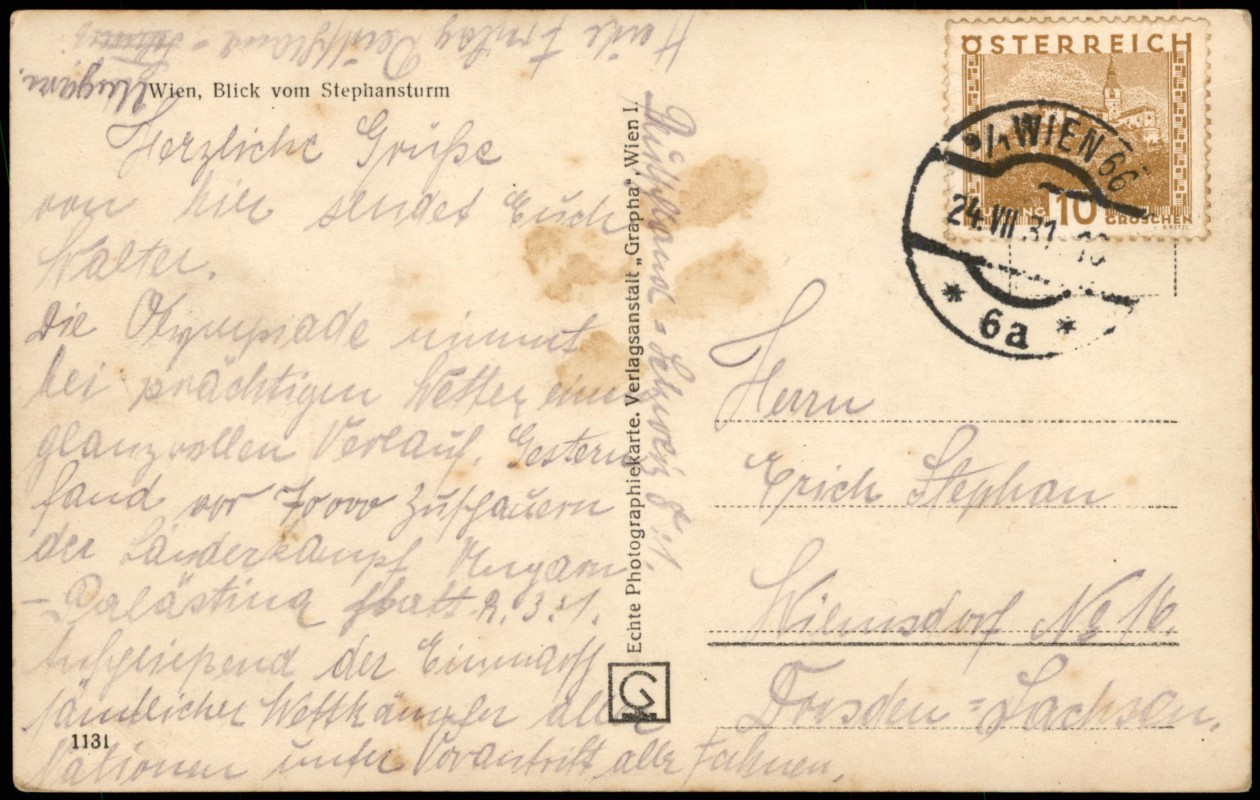 Heute Freitag Deutschland -
Ungarn.
Wien, Blick vom Stephansturm
Herzliche Grüße
von hier sendet Euch
Walter.
Die Olympiade nimmt
bei prächtigen Wetter einen
glanzvollen Verlauf. Gestern
fand vor 70000 Zuschauern
der Länderkampf Ungarn
- Palästina statt R. 3:1.
Anschliessend der Einmarsch
sämtlicher Wettkämpfer aller
Nationen unter Vorantritt aller Fahnen.
1131
Echte Photographiekarte. Verlagsanstalt „Grapha“, Wien I.
G
Deutschland - Schweiz 8:1.
ÖSTERREICH
10
GROSCHEN
WIEN 66
24. VII. 31
* 6a *
Herrn
Erich Stephan
Wilmsdorf No 16.
Dresden - Sachsen.